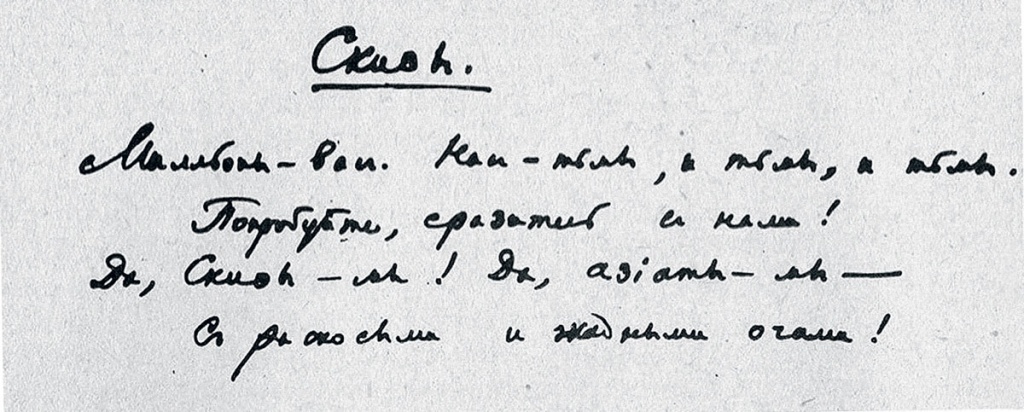 Скиѳы.
Милльоны – вас. Нас – тьмы, и тьмы, и тьмы.
Попробуйте, сразитесь съ нами!
Да, Скиѳы – мы! Да, азіаты – мы —
Съ раскосыми и жадными очами!